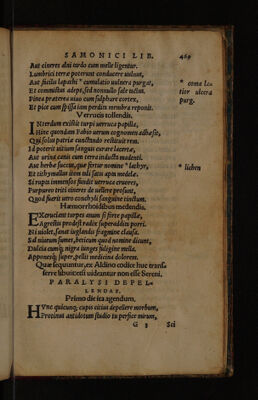 SAMONICI LIB. 469
Aut cineres aut tardo cum melle ligentur.
Lumbrici terræ poterunt conducere vulnus,
Aut facilis lapathi * cumulatio vulnera purgat, * come la
Et commixtus adeps, sed nonnullo sale tactus. tior ulcera
Pinea præterea visco cum sulphure cortex, purg.
Et pice cum spissa iam perdita membra reponit.
Verrucis tollendis.
INterdum existit turpi verruca papilla,
Hinc quondam Fabio verum cognomen adhæsit,
Qui solus patriæ cunctando restituit rem.
Id poterit vitium sanguis curare lacertæ,
Aut urina canis cum terra inducta madenti.
Aut herbæ succus, quæ fertur nomine * lathyr, * lichen
Et tithymallus item tali satis apta medelæ.
Si rupis immensos fundit verruca cruores,
Purpureo triti cineres de vellere prosunt,
Quod fuerit vero conchyli sanguine tinctum.
Hæmorrhoidibus medendis.
EXcruciant turpes anum si forte papillæ,
Agrestis prodest radix superaddita porri.
Ni violet, sanat iuglandis fragmine clausa.
Sed nuorum sumes, beticum quod nomine dicunt,
Dulcia cumq; nigra iunges fuligine mella.
Apponensq; super, pelles medicina dolorem.
Quæ sequuntur, ex Aldino codice huc trans-
ferre libuit: etsi videantur non esse Sereni.
PARALYSI DEPEL-
LENDAE.
Primo die ita agendum.
HVnc quicunq; cupis citius depellere morbum,
Protinus antidotum studio tu perfice mirum,
G 3 Sci